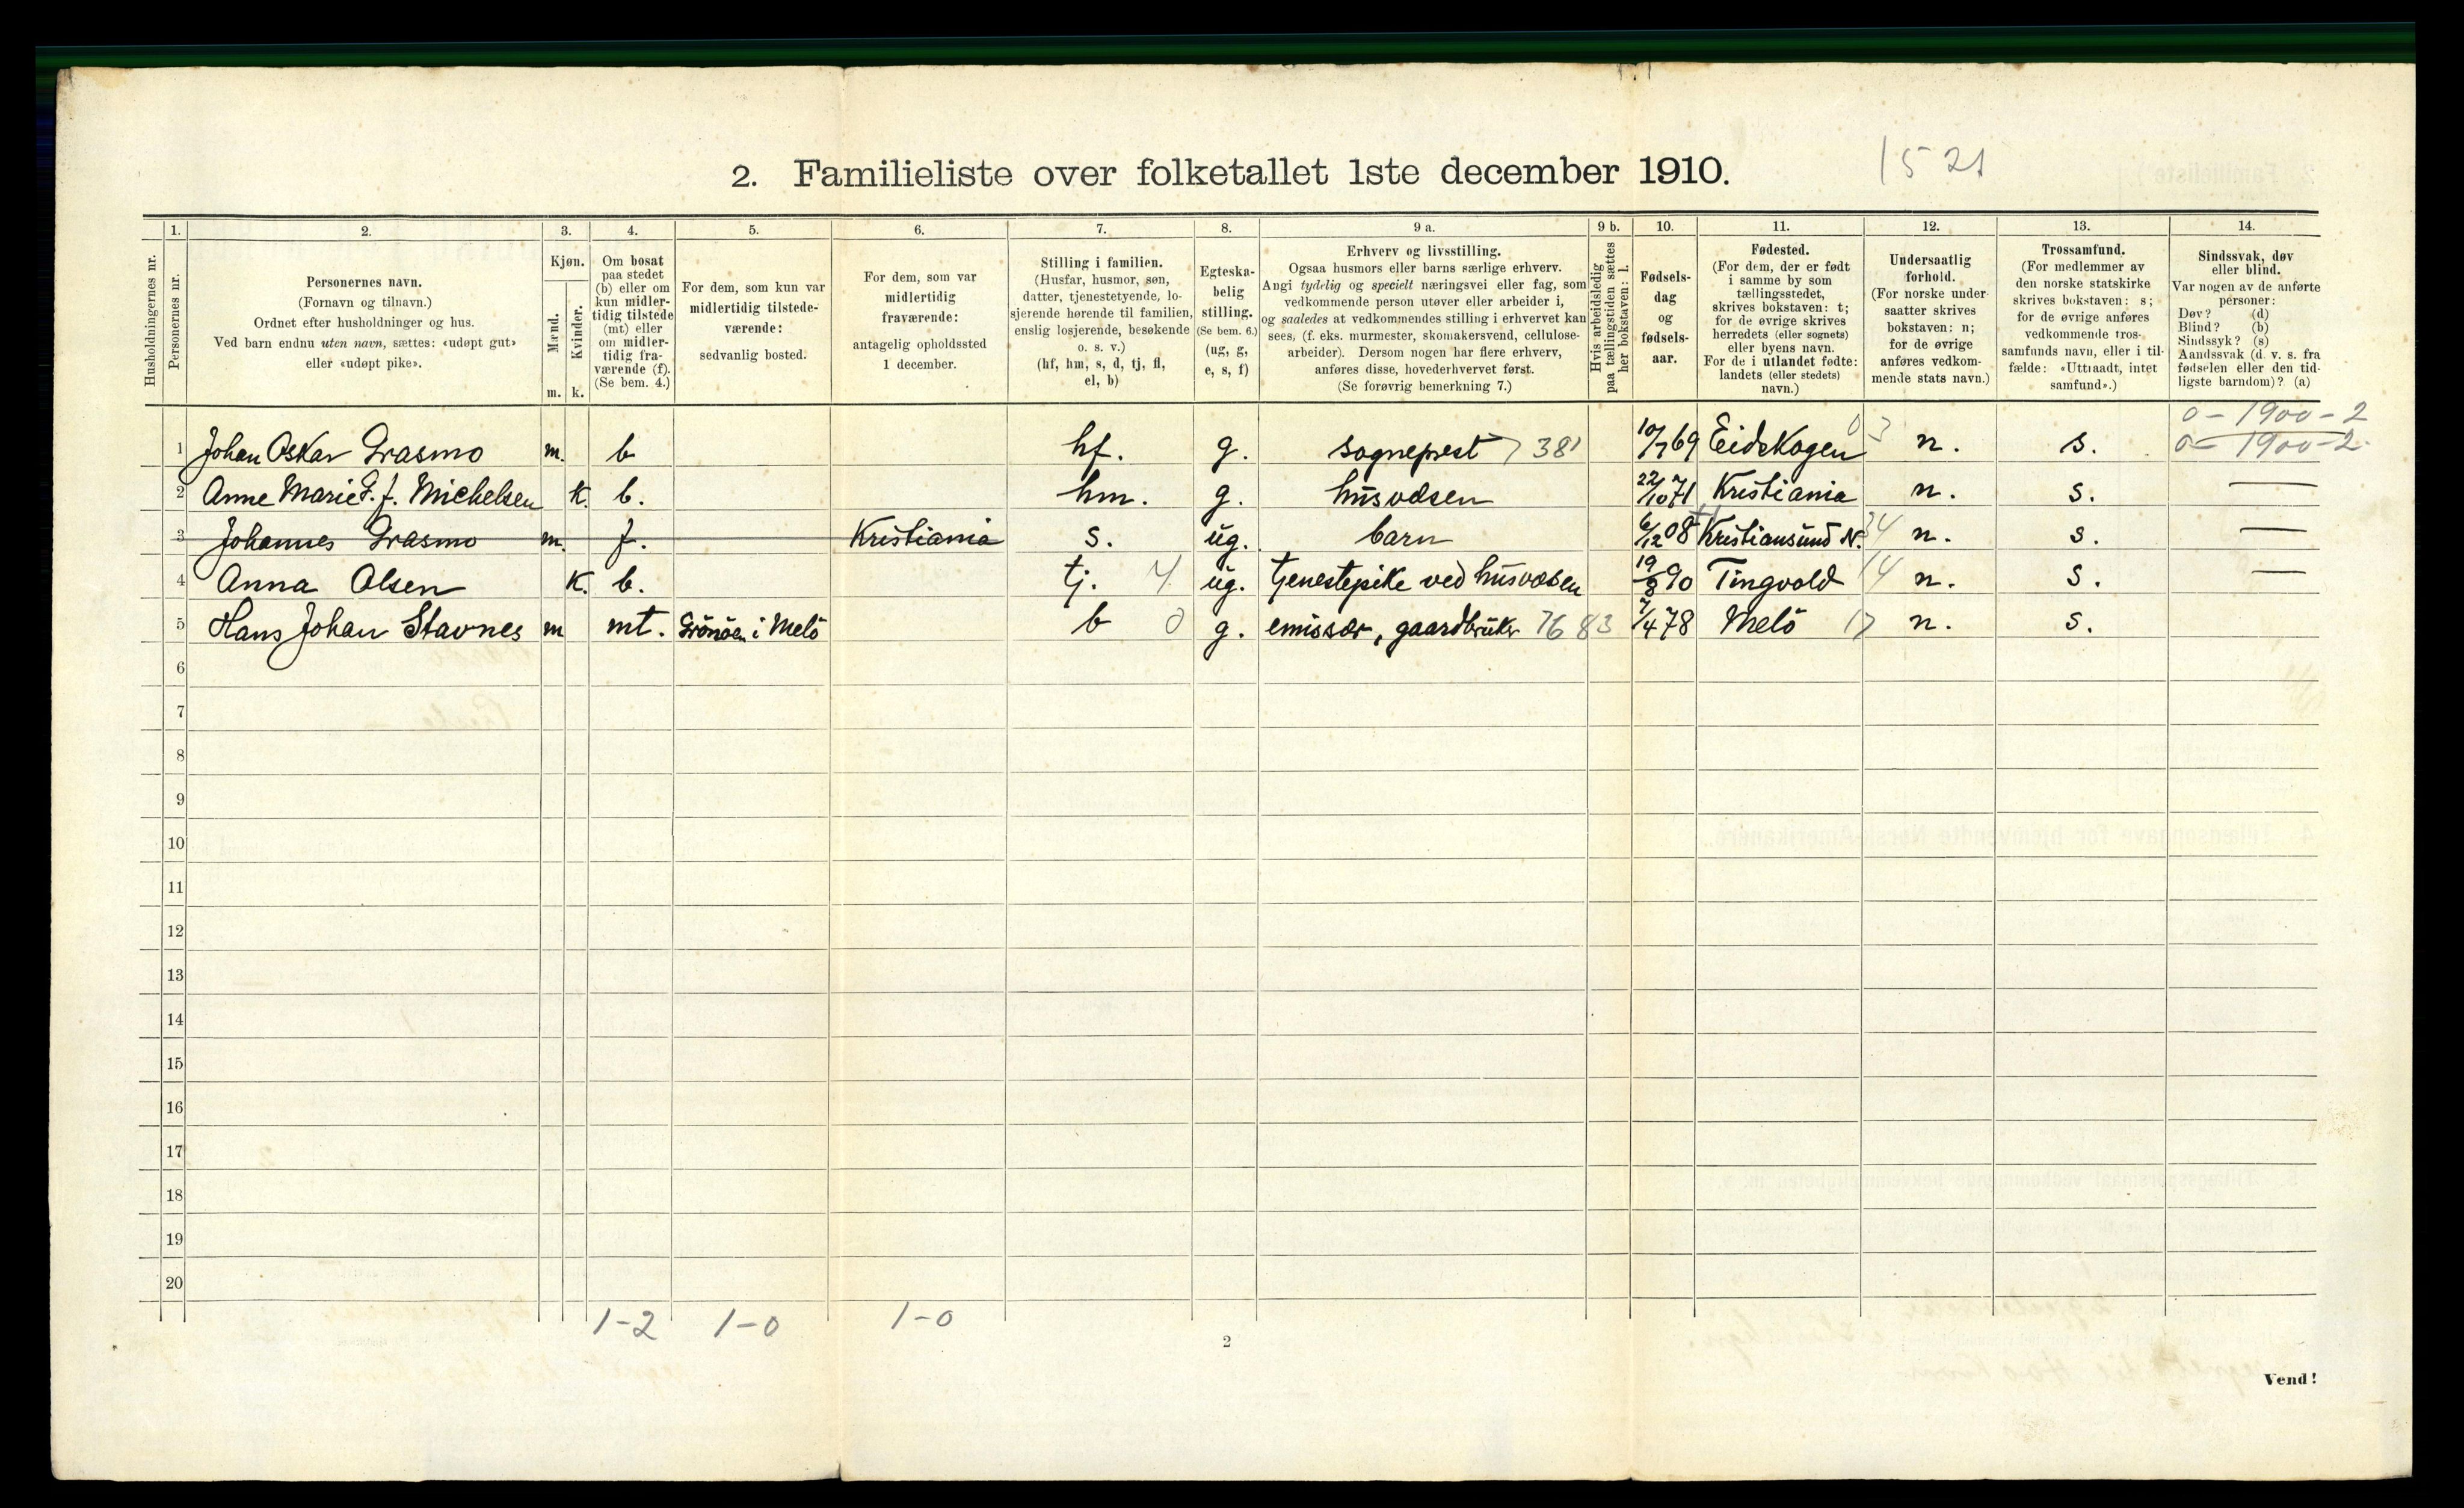 2. Familieliste over folketallet 1ste december 1910.
1521
1.
2.
3.
4.
5.
6.
7.
8.
9 a.
9 b.
10.
11.
12.
13.
14.
Husholdningernes nr.
Personernes nr.
Personernes navn.
(Fornavn og tilnavn.)
Ordnet efter husholdninger og hus.
Ved barn endnu uten navn, sættes: «udøpt gut»
eller «udøpt pike».
Kjøn.
Mænd.
Kvinder.
m.
k.
Om bosat
paa stedet
(b) eller om
kun midler-
tidig tilstede
(mt) eller
om midler-
tidig fra-
værende (f).
(Se bem. 4.)
For dem, som kun var
midlertidig tilstede-
værende:
sedvanlig bosted.
For dem, som var
midlertidig
fraværende:
antagelig opholdssted
1 december.
Stilling i familien.
(Husfar, husmor, søn,
datter, tjenestetyende, lo-
sjerende hørende til familien,
enslig losjerende, besøkende
o. s. v.)
(hf, hm, s, d, tj, fl,
el, b)
Egteska-
belig
stilling.
(Se bem. 6.)
(ug, g,
e, s, f)
Erhverv og livsstilling.
Ogsaa husmors eller barns særlige erhverv.
Angi tydelig og specielt næringsvei eller fag, som
vedkommende person utøver eller arbeider i,
og saaledes at vedkommendes stilling i erhvervet kan
sees, (f. eks. murmester, skomakersvend, cellulose-
arbeider). Dersom nogen har flere erhverv,
anføres disse, hovederhvervet først.
(Se forøvrig bemerkning 7.)
Hvis arbeidsledig
paa tællingstiden sættes
her bokstaven: l.
Fødsels-
dag
og
fødsels-
aar.
Fødested.
(For dem, der er født
i samme by som
tællingsstedet,
skrives bokstaven: t;
for de øvrige skrives
herredets (eller sognets)
eller byens navn.
For de i utlandet fødte:
landets (eller stedets)
navn.)
Undersaatlig
forhold.
(For norske under
saatter skrives
bokstaven: n;
for de øvrige
anføres vedkom-
mende stats navn.)
Trossamfund.
(For medlemmer av
den norske statskirke
skrives bokstaven: s;
for de øvrige anføres
vedkommende tros-
samfunds navn, eller i til-
fælde: «Uttraadt, intet
samfund».)
Sindssvak, døv
eller blind.
Var nogen av de anførte
personer:
Døv? (d)
Blind? (b)
Sindssyk? (s)
Aandssvak (d. v. s. fra
fødselen eller den tid-
ligste barndom)? (a)
0 - 1900 - 2
1 Johan Oskar Grasmo m. b hf. g. sogneprest 7381 10/7 69 Eidskogen 03 n. s. 0 - 1900 - 2
2 Anne Marie G. J. Michelsen K. b. hm. g. husvæsen 22/10 71 Kristiania n. s. —
3 Johannes Grasmo m. f. Kristiania s. ug. barn 6/12 08 Kristiansund N. n. s. —
4 Anna Olsen K. b. tj. 4 ug. tjenestepike ved husvæsen 19/8 90 Tingvold 14 n. s. —
5 Hans Johan Stavnes m mt. Grönöen i Melö b 0 g. emissær, gaardbruker 7683 7/4 78 Melö 17 n. s.
6
7
8
9
10
11
12
13
14
15
16
17
18
19
20
1-2 1-0 1-0
2
Vend!